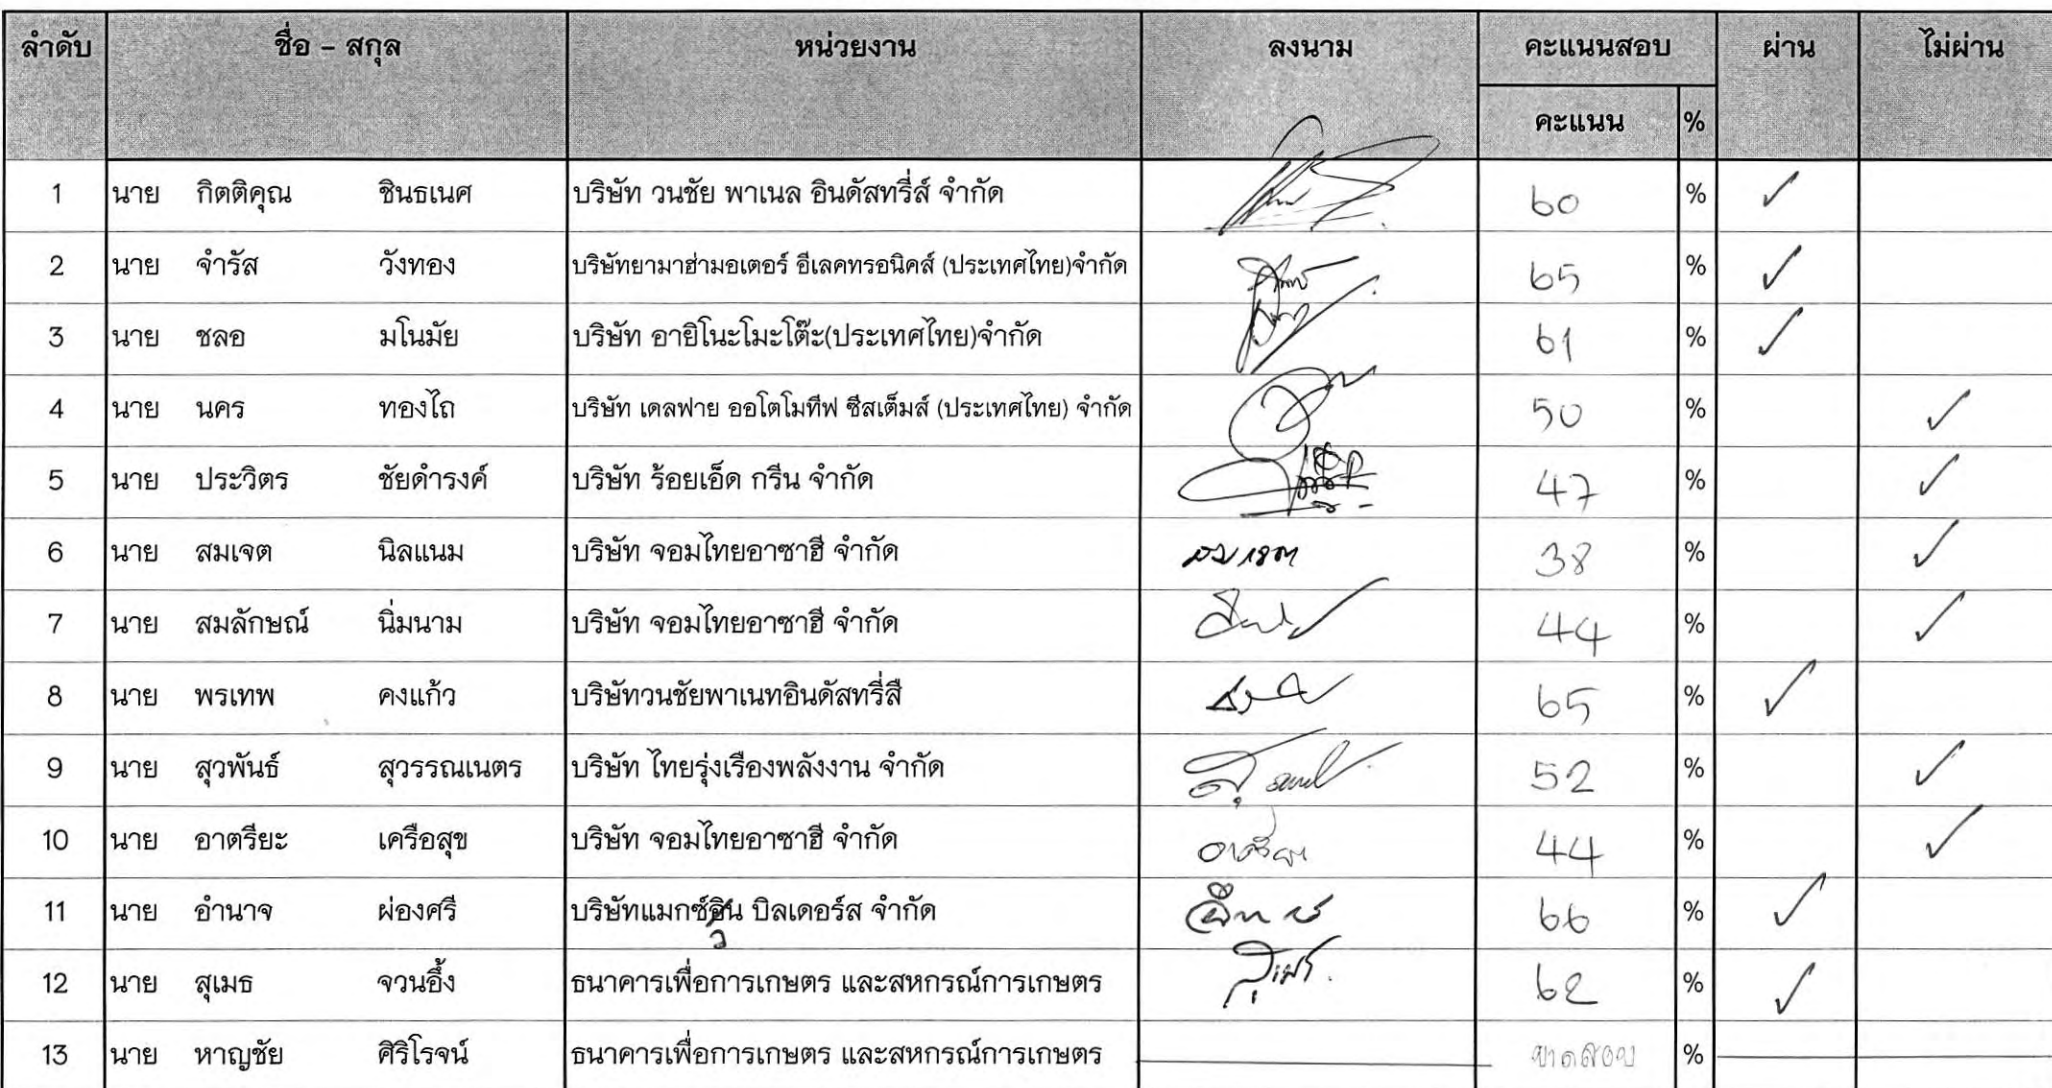 ลำดับ ชื่อ – สกุล หน่วยงาน ลงนาม คะแนนสอบ ผ่าน ไม่ผ่าน
คะแนน %
1 นาย กิตติคุณ ชินธเนศ บริษัท วนชัย พาเนล อินดัสทรี่ส์ จำกัด 60 % ✓
2 นาย จำรัส วังทอง บริษัทยามาฮ่ามอเตอร์ อีเลคทรอนิคส์ (ประเทศไทย)จำกัด 65 % ✓
3 นาย ชลอ มโนมัย บริษัท อายิโนะโมะโต๊ะ(ประเทศไทย)จำกัด 61 % ✓
4 นาย นคร ทองไถ บริษัท เดลฟาย ออโตโมทีฟ ซีสเต็มส์ (ประเทศไทย) จำกัด 50 % ✓
5 นาย ประวิตร ชัยดำรงค์ บริษัท ร้อยเอ็ด กรีน จำกัด 47 % ✓
6 นาย สมเจต นิลแนม บริษัท จอมไทยอาซาฮี จำกัด สมเจต 38 % ✓
7 นาย สมลักษณ์ นิ่มนาม บริษัท จอมไทยอาซาฮี จำกัด 44 % ✓
8 นาย พรเทพ คงแก้ว บริษัทวนชัยพาเนทอินดัสทรี่สื 65 % ✓
9 นาย สุวพันธ์ สุวรรณเนตร บริษัท ไทยรุ่งเรืองพลังงาน จำกัด 52 % ✓
10 นาย อาตรียะ เครือสุข บริษัท จอมไทยอาซาฮี จำกัด 44 % ✓
11 นาย อำนาจ ผ่องศรี บริษัทแมกซ์วิน บิลเดอร์ส จำกัด 66 % ✓
12 นาย สุเมธ จวนอึ้ง ธนาคารเพื่อการเกษตร และสหกรณ์การเกษตร สุเมธ 62 % ✓
13 นาย หาญชัย ศิริโรจน์ ธนาคารเพื่อการเกษตร และสหกรณ์การเกษตร ขาดสอบ %